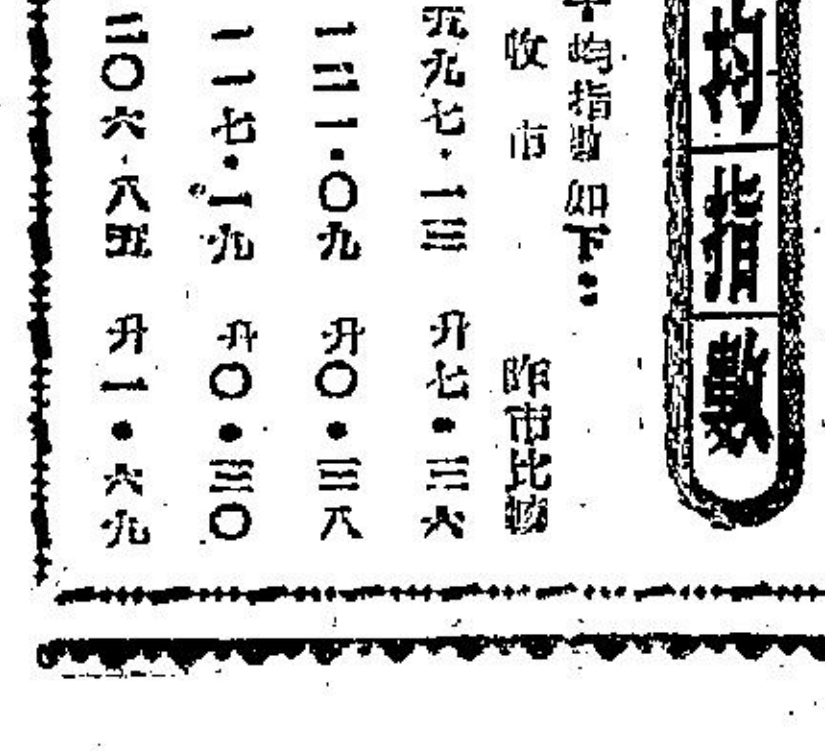 均指數
平均指數如下：
收市　昨市比較
五九七・一三　升七・三六
一二一・〇九　升〇・三八
一一七・一九　升〇・三〇
二〇六・八五　升一・六九